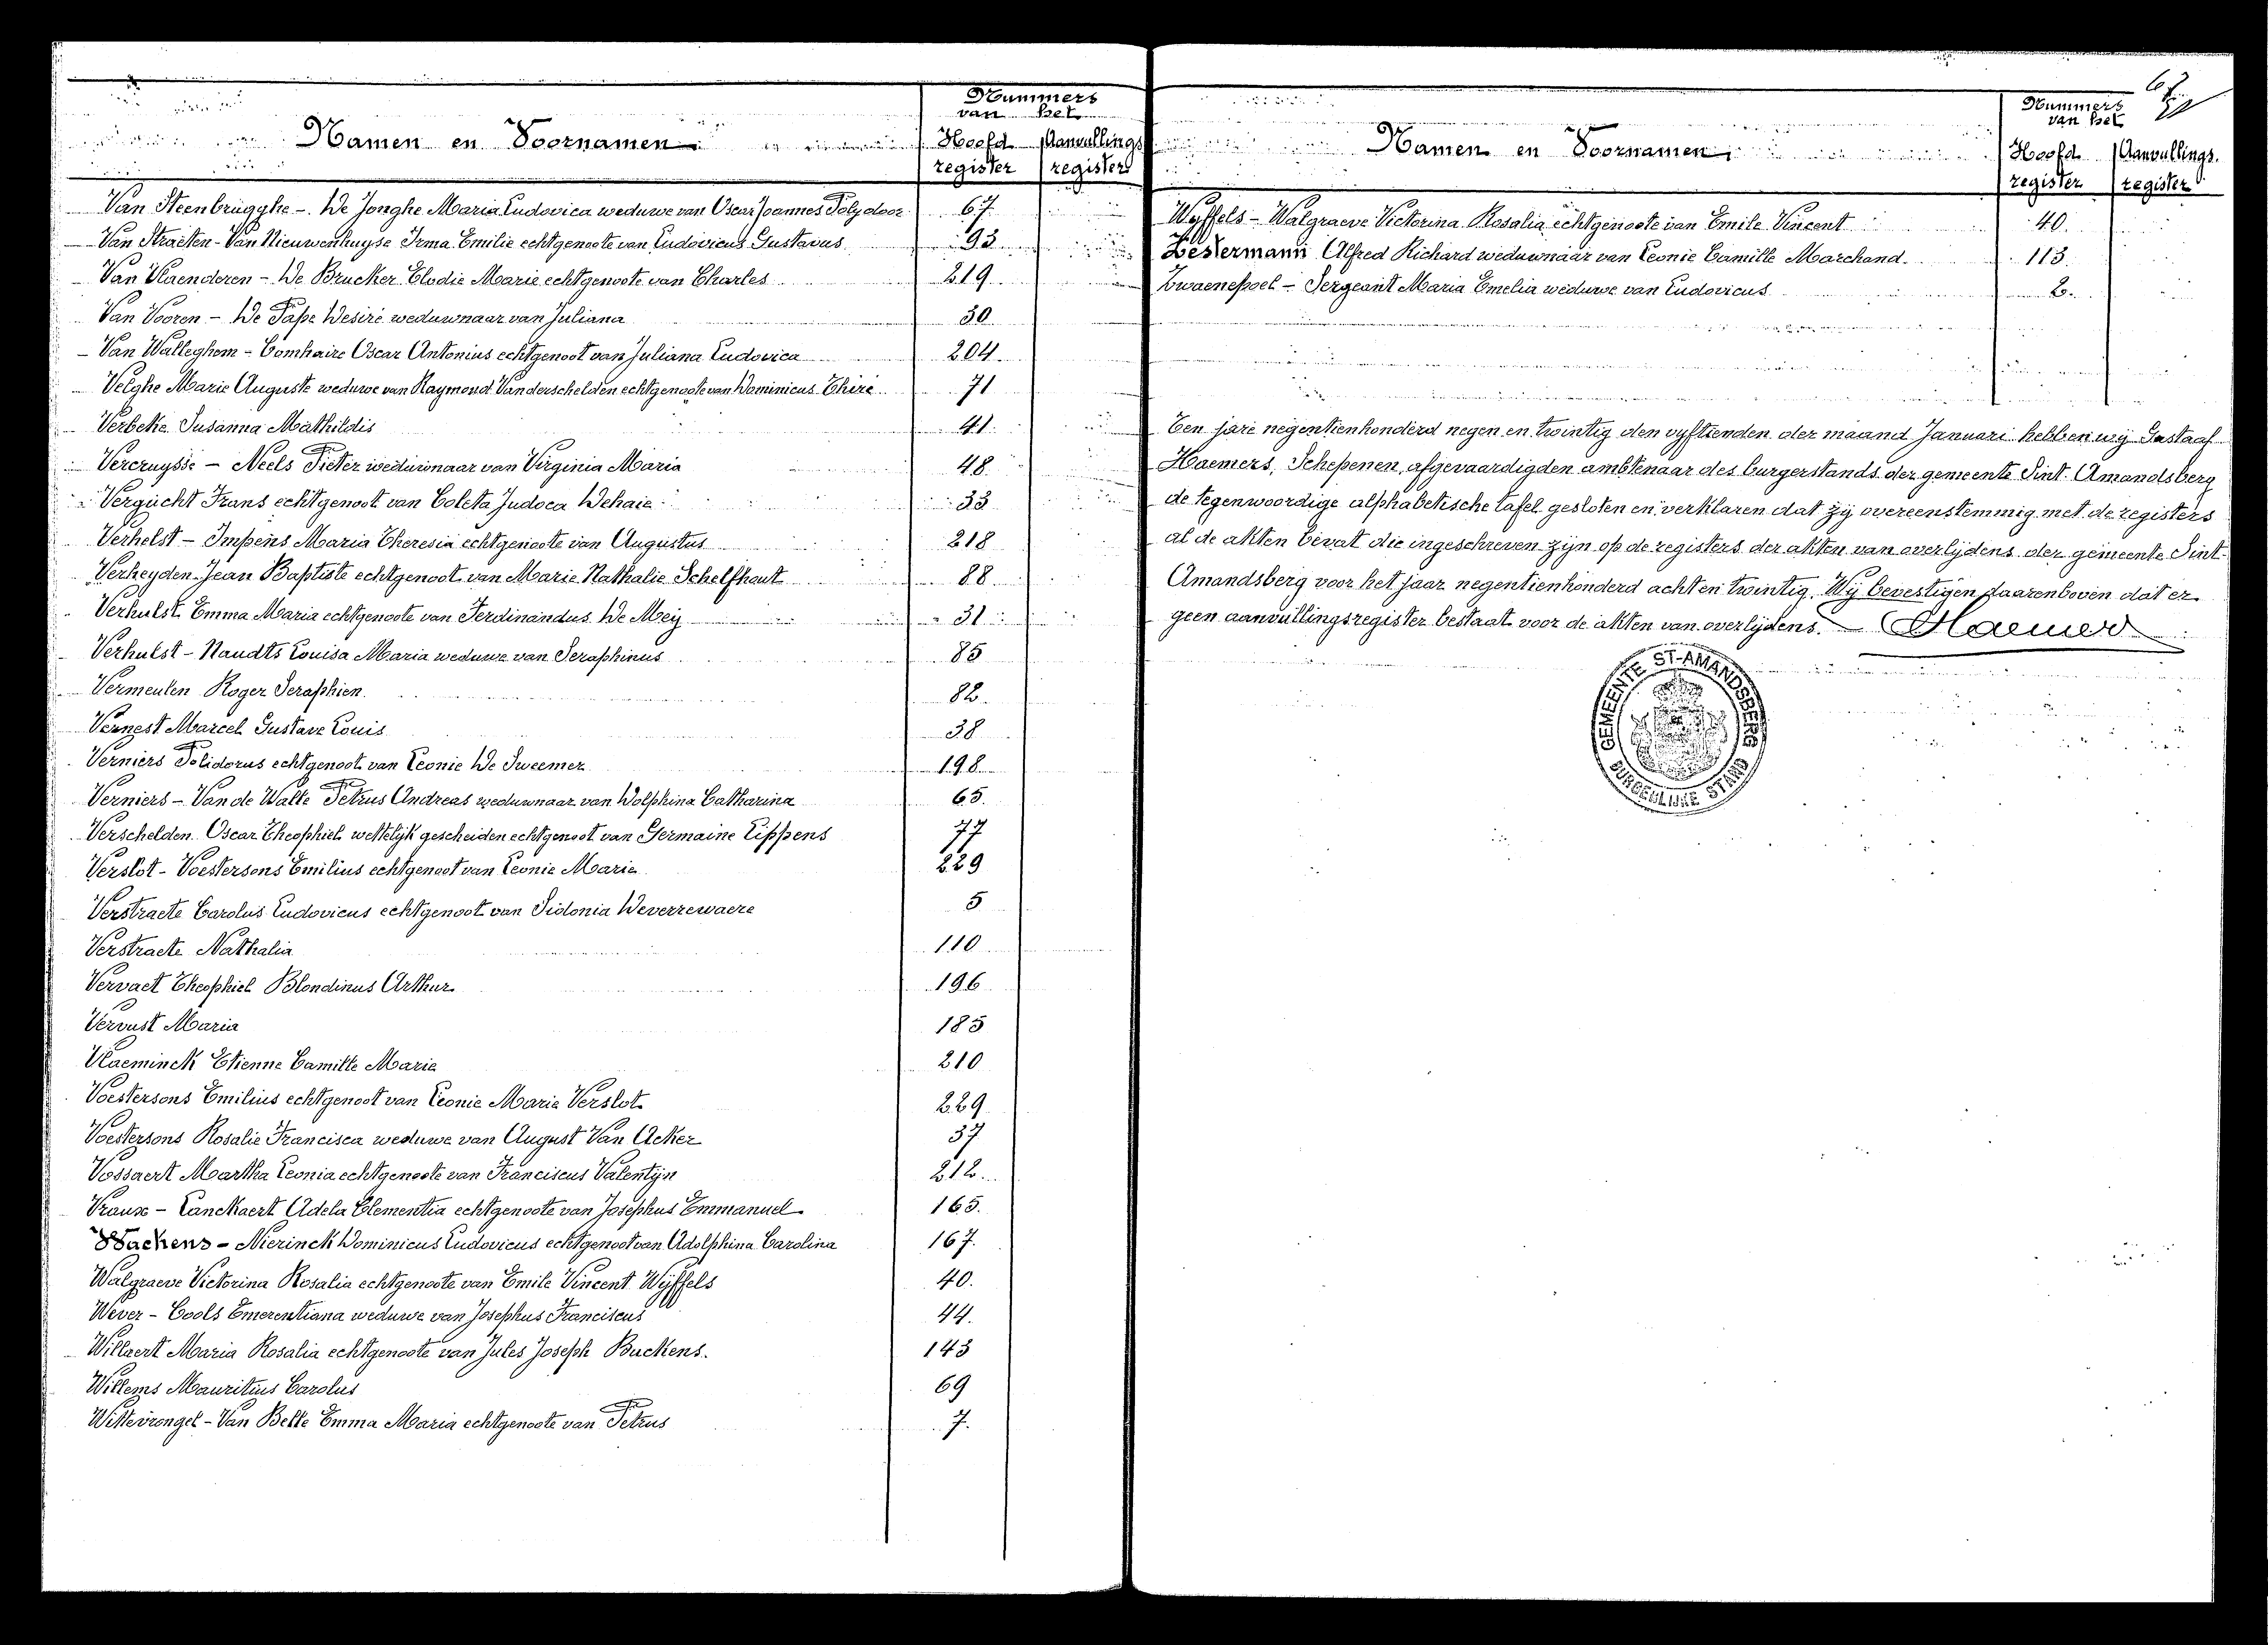 Nummers
van het
Namen en Voornamen
Hoofd Aanvullings
register register
Van Steenbrugghe - De Jonghe Maria Ludovica weduwe van Oscar Joannes Polydoor 67
Van Straeten - Van Nieuwenhuyse Irma Emilie echtgenoote van Ludovicus Gustavus 93
Van Vlaenderen - De Brucker Elodie Marie echtgenoote van Charles 219
Van Vooren - De Pape Desiré weduwnaar van Juliana 30
Van Walleghem - Comhaire Oscar Antonius echtgenoot van Juliana Ludovica 204
Velghe Marie Auguste weduwe van Raymond Vanderschelden echtgenoote van Dominicus Thiré 71
Verbeke Susanna Mathildis 41
Vercruysse - Neels Pieter weduwnaar van Virginia Maria 48
Vergucht Frans echtgenoot van Coleta Judoca Dehaie 33
Verhelst - Impens Maria Theresia echtgenoote van Augustus 218
Verheyden Jean Baptiste echtgenoot van Marie Nathalie Schelfhout 88
Verhulst Emma Maria echtgenoote van Ferdinandus De Mey 31
Verhulst - Naudts Louisa Maria weduwe van Seraphinus 85
Vermeulen Roger Seraphien 82
Vernest Marcel Gustave Louis 38
Verniers Polidorus echtgenoot van Leonie De Sweemer 198
Verniers - Van de Walle Petrus Andreas weduwnaar van Dolphina Catharina 65
Verschelden Oscar Theophiel wettelijk gescheiden echtgenoot van Germaine Lippens 77
Verslot - Voestersons Emilius echtgenoot van Leonie Marie 229
Verstraete Carolus Ludovicus echtgenoot van Sidonia Deverrewaere 5
Verstraete Nathalia 110
Vervaet Theophiel Blondinus Arthur 196
Vervust Maria 185
Vlaeminck Etienne Camille Marie 210
Voestersons Emilius echtgenoot van Leonie Marie Verslot 229
Voestersons Rosalie Francisca weduwe van August Van Acker 37
Vossaert Martha Leonia echtgenoote van Franciscus Valentijn 212
Vraux - Lanckaert Adela Clementia echtgenoote van Josephus Emmanuel 165
Wachens - Nierinck Dominicus Ludovicus echtgenoot van Adolphina Carolina 167
Walgraeve Victorina Rosalia echtgenoote van Emile Vincent Wyffels 40
Wever - Cools Emerentiana weduwe van Josephus Franciscus 44
Willaert Maria Rosalia echtgenoote van Jules Joseph Buckens 143
Willems Mauritius Carolus 69
Wittevrongel - Van Belle Emma Maria echtgenoote van Petrus 7
Nummers
van het
Namen en Voornamen
Hoofd Aanvullings
register register
Wyffels - Walgraeve Victorina Rosalia echtgenoote van Emile Vincent 40
Zestermann Alfred Richard weduwnaar van Leonie Camille Marchand 113
Zwaenepoel - Sergeant Maria Emelia weduwe van Ludovicus 2
Ten jare negentienhonderd negen en twintig den vyftienden der maand Januari hebben wij Gustaaf
Haemers, Schepenen, afgevaardigden ambtenaar des burgerstands der gemeente Sint Amandsberg
de tegenwoordige alphabetische tafel gesloten en verklaren dat zy overeenstemmig met de registers
al de akten bevat die ingeschreven zyn op de registers der akten van overlijdens der gemeente Sint-
Amandsberg voor het jaar negentienhonderd acht en twintig. Wij bevestigen daarenboven dat er
geen aanvullingsregister bestaat voor de akten van overlijdens. Haemers
GEMEENTE ST-AMANDSBERG
BURGERLIJKE STAND